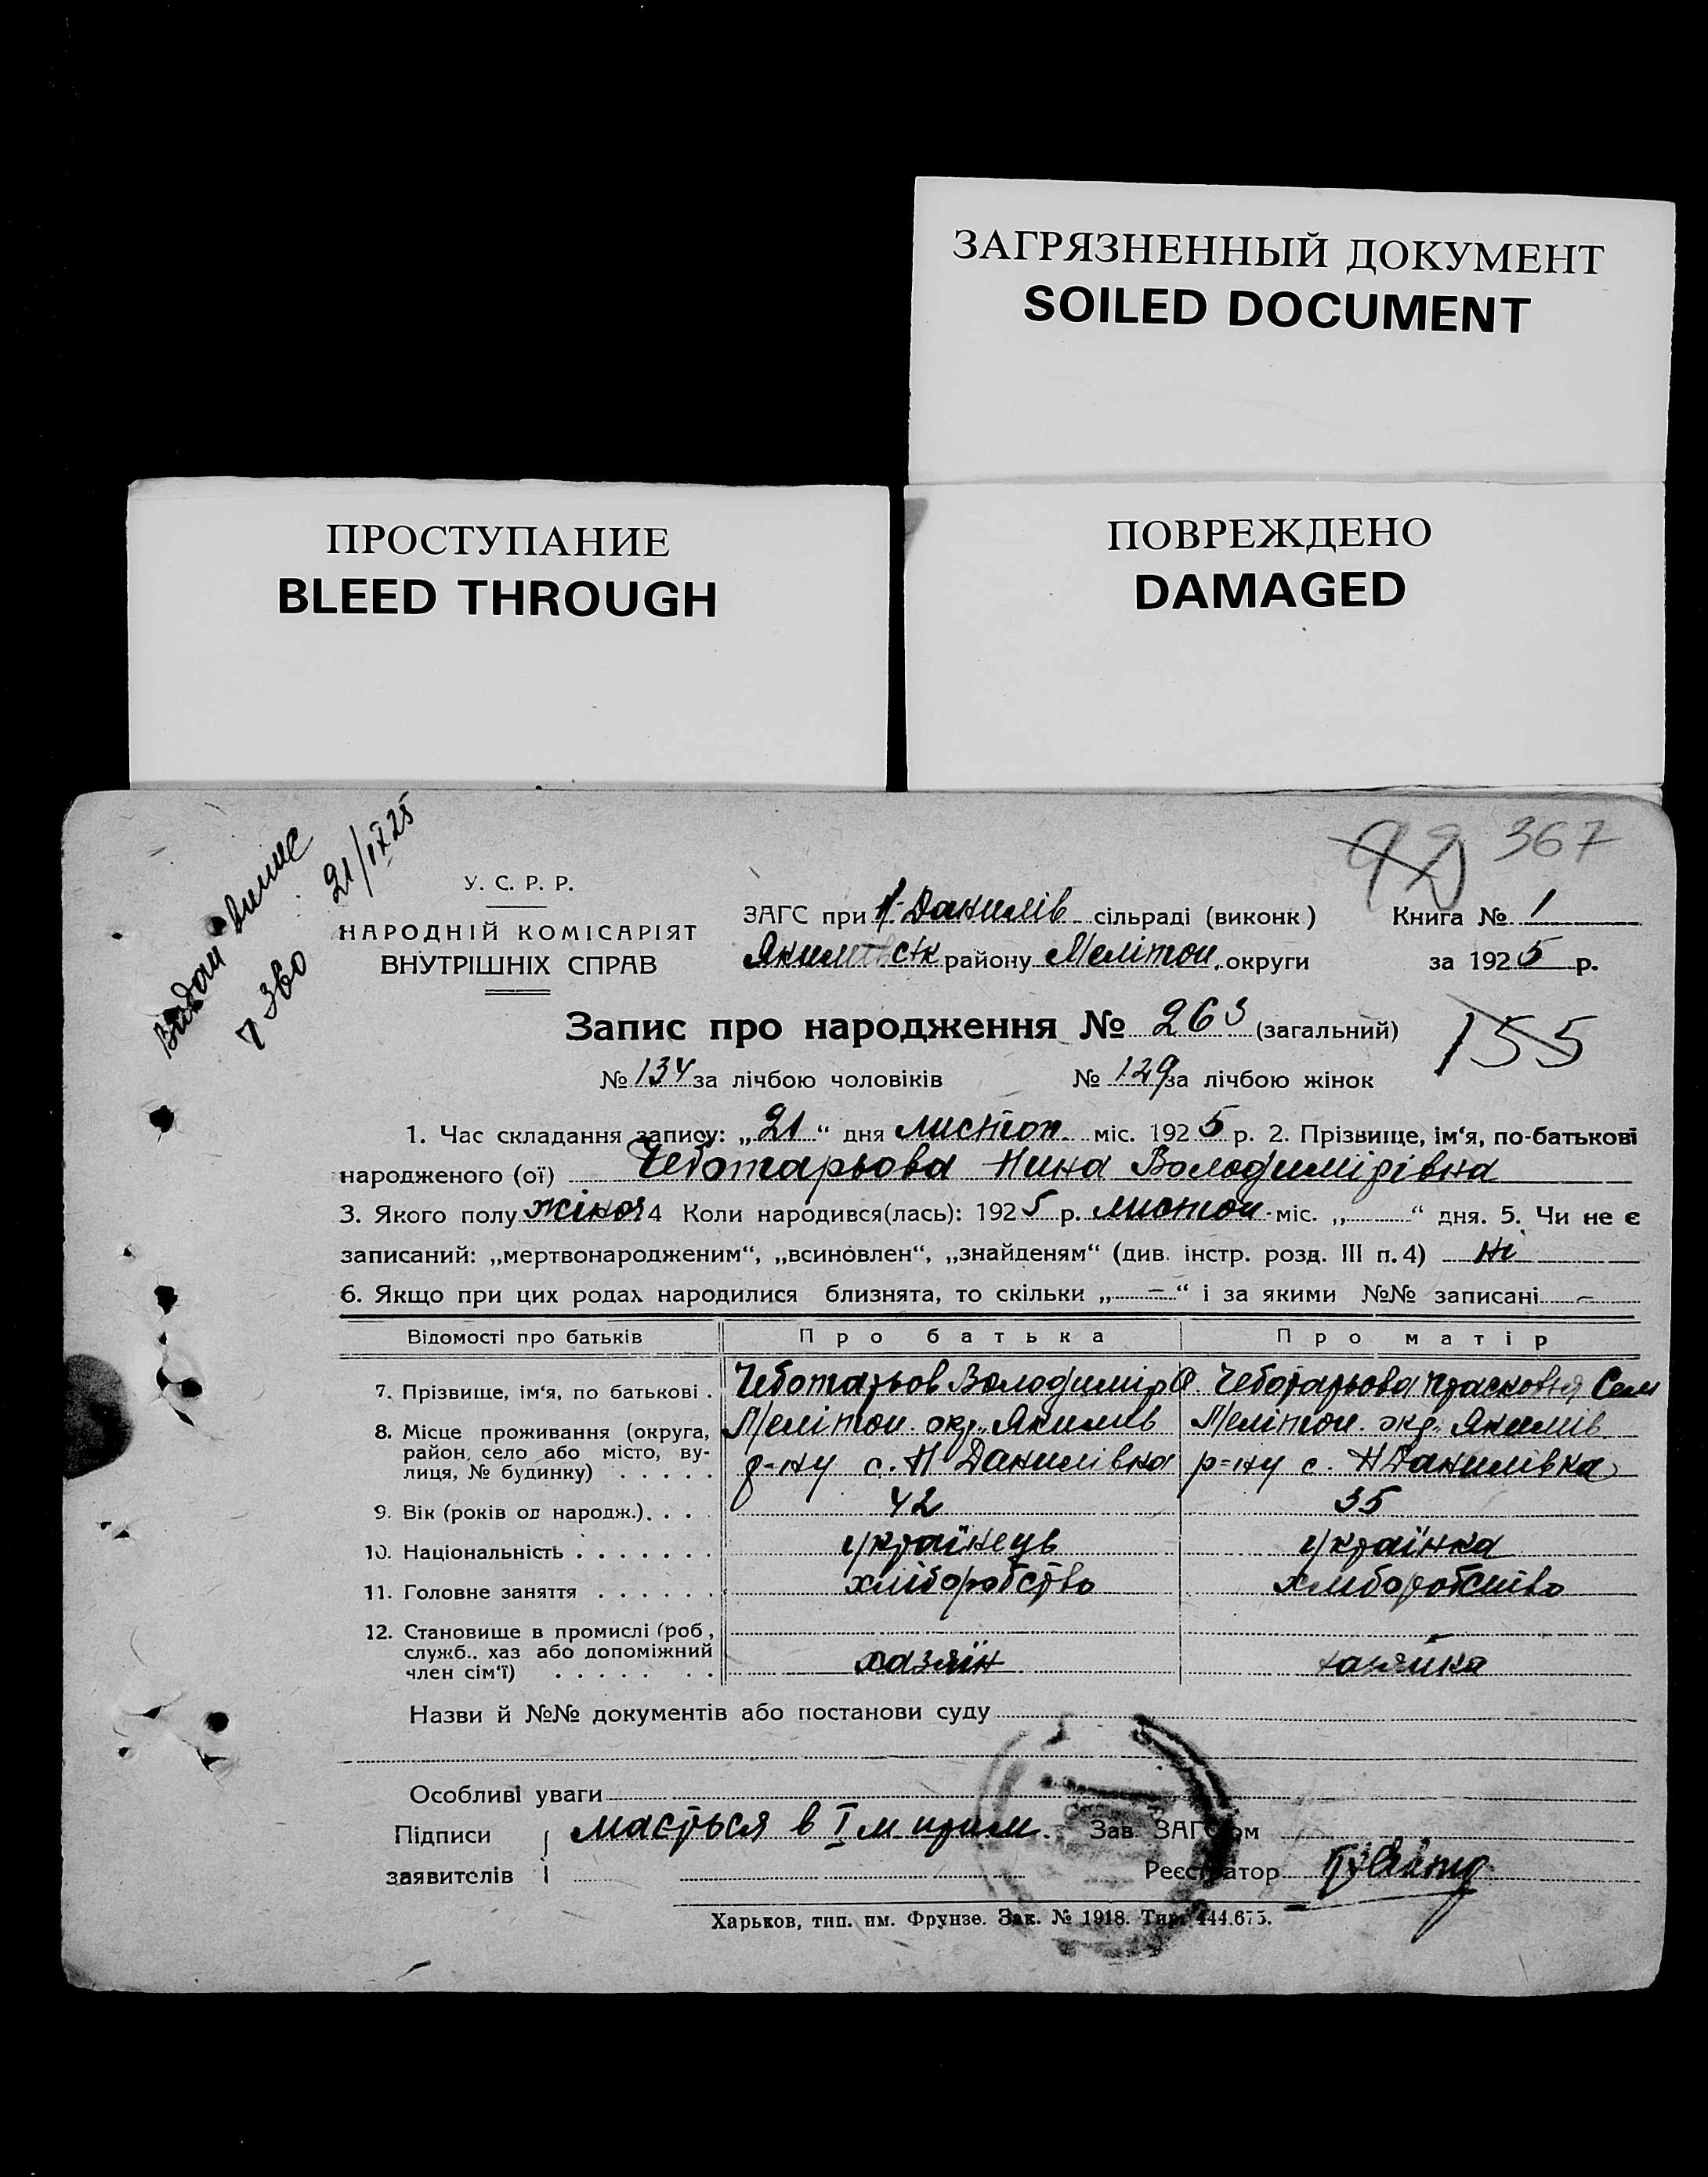 ЗАГРЯЗНЕННЫЙ ДОКУМЕНТ
SOILED DOCUMENT
ПРОСТУПАНИЕ
BLEED THROUGH
ПОВРЕЖДЕНО
DAMAGED
92 367
21/IX 25
У. С. Р. Р.
НАРОДНІЙ КОМІСАРІЯТ
ВНУТРІШНІХ СПРАВ
ЗАГС при Н-Данилів сільраді (виконк) Книга № 1
Якимівськ району Мелітоп. округи за 1925 р.
Запис про народження № 263 (загальний)
155
№ 134 за лічбою чоловіків № 129 за лічбою жінок
1. Час складання запису: „21“ дня листоп міс. 1925 р. 2. Прізвище, ім‘я, по-батькові
народженого (ої) Чеботарьова Нина Володимірівна
3. Якого полу жіноч 4 Коли народився(лась): 1925 р. листоп. міс. „ “ дня. 5. Чи не є
записаний: „мертвонародженим“, „всиновлен“, „знайденям“ (див. інстр. розд. III п. 4) ні
6. Якщо при цих родах народилися близнята, то скільки „ — “ і за якими №№ записані —
Відомості про батьків Про батька Про матір
7. Прізвище, ім‘я, по батькові . Чеботарьов Володимір Ф Чеботарьова Прасковья Сем
8. Місце проживання (округа, район, село або місто, вулиця, № будинку) . . . . .
Мелітоп. окр. Якимів Мелітоп. окр. Якимів
р-ну с. Н Данилівка р-ну с. Н Данилівка
9. Вік (років од народж.). . . . 42 35
10. Національність . . . . . . . українець українка
11. Головне заняття . . . . . . хліборобство хліборобство
12. Становище в промислі (роб., служб., хаз або допоміжний член сім‘ї) . . . . . . .
хазяїн хазяйка
Назви й №№ документів або постанови суду
Особливі уваги
Підписи заявителів
мається в І м прим. Зав. ЗАГСом
Реєстратор
Харьков, тип. им. Фрунзе. Зак. № 1918. Тир. 444.675.